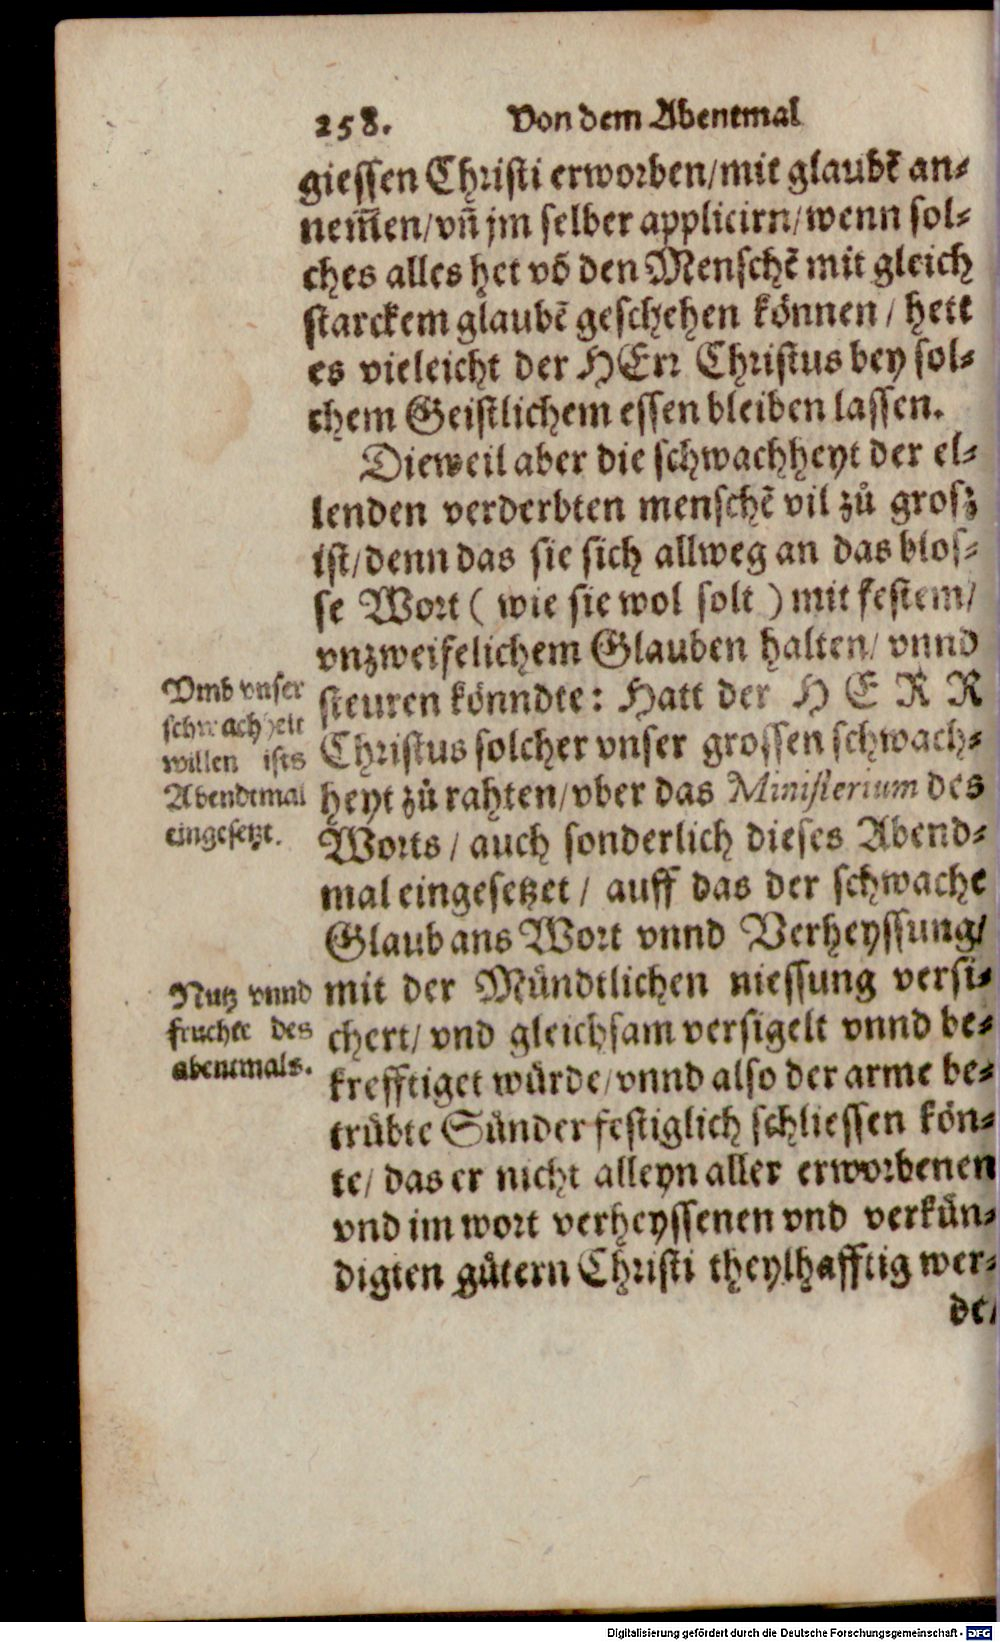 258. Von dem Abentmal
giessen Christi erworben/mit glaubē an⸗
nem̃en/vñ jm selber applicirn/wenn sol⸗
ches alles het vō den Menschē mit gleich
starckem glaubē geschehen können / hett
es vieleicht der HErr Christus bey sol⸗
chem Geistlichem essen bleiben lassen.
Dieweil aber die schwachheyt der el⸗
lenden verderbten menschē vil zů grosz
ist/denn das sie sich allweg an das blos⸗
se Wort ( wie sie wol solt ) mit festem/
vnzweifelichem Glauben halten/ vnnd
steuren könndte: Hatt der H E R R
Christus solcher vnser grossen schwach⸗
heyt zů rahten/vber das Ministerium des
Worts / auch sonderlich dieses Abend⸗
mal eingesetzet / auff das der schwache
Glaub ans Wort vnnd Verheyssung/
mit der Mündtlichen niessung versi⸗
chert/ vnd gleichsam versigelt vnnd be⸗
krefftiget würde/vnnd also der arme be⸗
trübte Sünder festiglich schliessen kön⸗
te/ das er nicht alleyn aller erworbenen
vnd im wort verheyssenen vnd verkün⸗
digten gütern Christi theylhafftig wer⸗
de/
Vmb vnser
schwachheit
willen ists
Abendtmal
eingesetzt.
Nutz vnnd
fruchte des
abentmals.
Digitalisierung gefördert durch die Deutsche Forschungsgemeinschaft - DFG